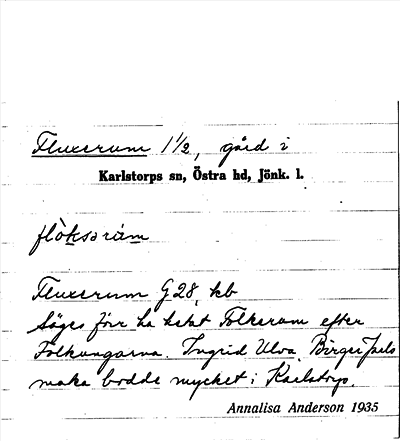 Fluxerum 1 1/2, gård i
Karlstorps sn, Östra hd, Jönk. l.
flòksərùm
Fluxerum G 28, kb
Säges förr ha hetat Folkerum efter
Folkungarna. Ingrid Ulva, Birger Jarls
maka bodde mycket i Karlstorp.
Annalisa Anderson 1935